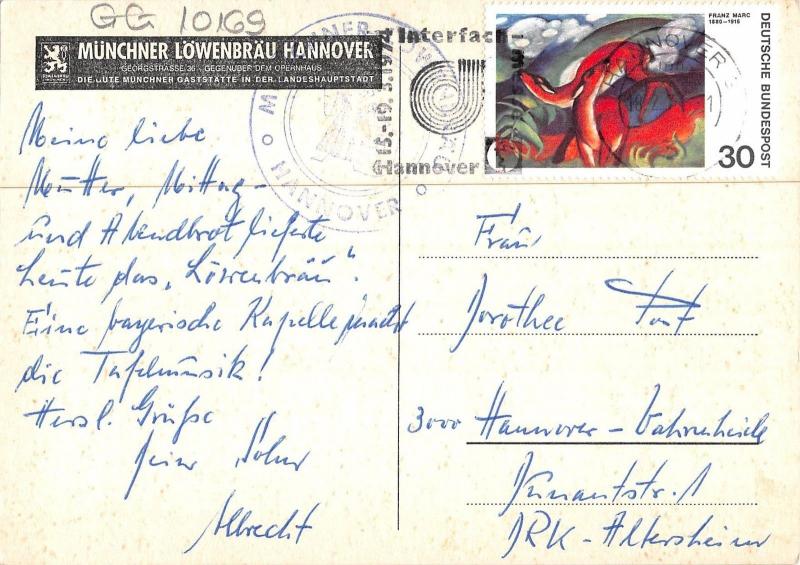 GG 10169
MÜNCHNER LÖWENBRÄU HANNOVER
GEORGSTRASSE 36 · GEGENÜBER DEM OPERNHAUS
DIE LÜTE MÜNCHNER GASTSTÄTTE IN DER LANDESHAUPTSTADT
HANNOVER
Interfach-
13.-19.3.1974
Hannover
FRANZ MARC
1880-1916
DEUTSCHE BUNDESPOST
30
HANNOVER
Meine liebe
Mutter, Mittag-
und Abendbrot lieferte
heute das „Löwenbräu".
Eine bayerische Kapelle macht
die Tafelmusik!
Herzl. Grüße
Dein Sohn
Albrecht
Frau
Dorothee Post
3000 Hannover-Vahrenheide
Dunantstr. 1
DRK-Altersheim